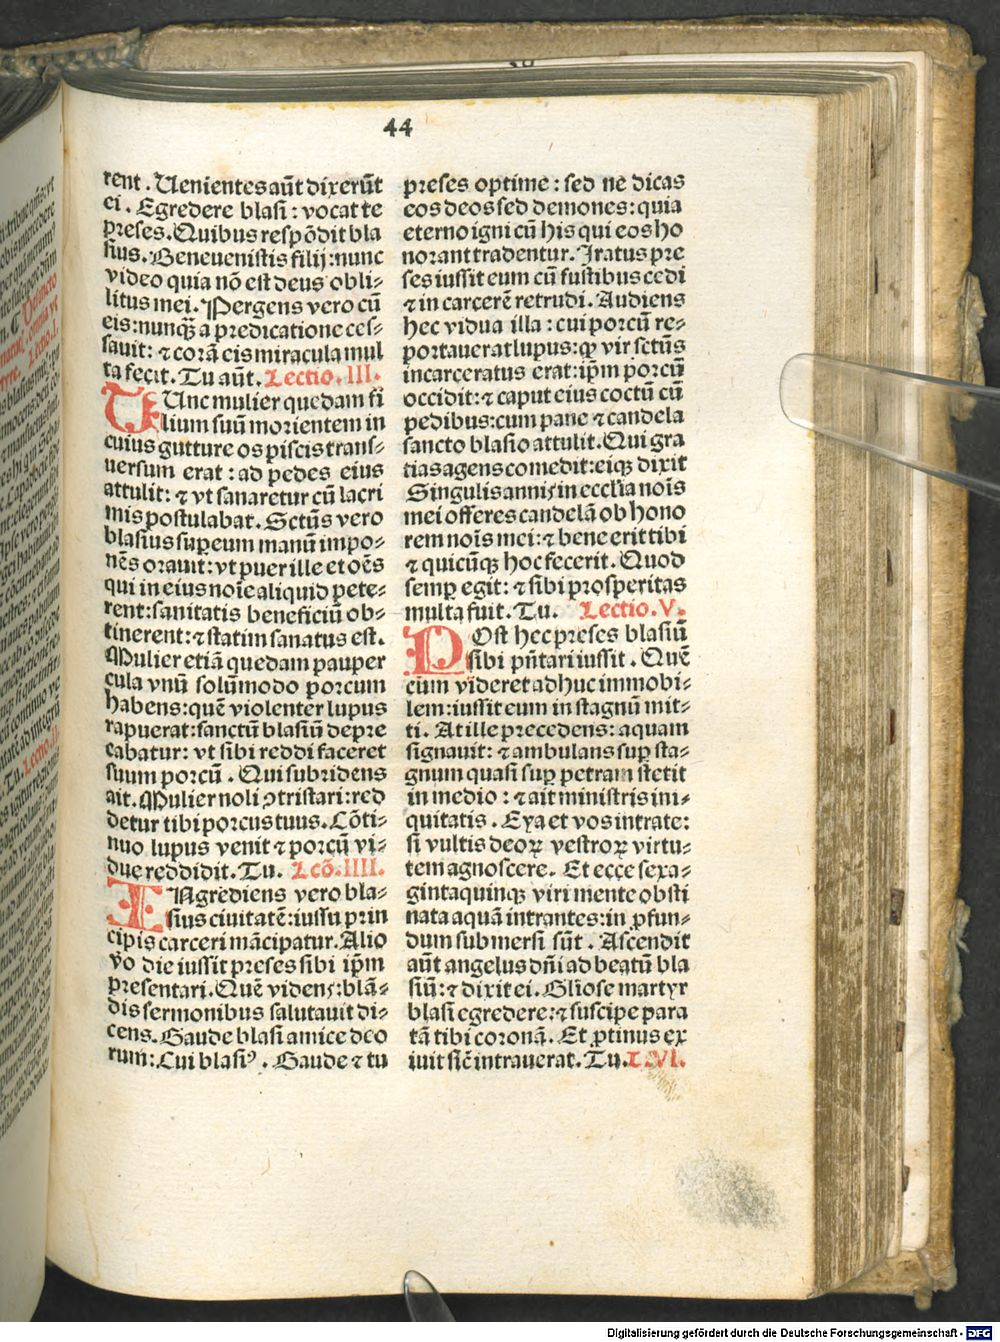 44
rent. Uenientes aūt dixerūt
ei. Egredere blasi: vocat te
preses. Quibus respōdit bla
sius. Beneuenistis filij: nunc
video quia nō est deus obli-
litus mei. Pergens vero cū
eis: nunqȝ a predicatione ces-
sauit: ⁊ corā eis miracula mul
ta fecit. Tu aūt. Lectio. III.
TUnc mulier quedam fi
lium suū morientem in
cuius gutture os piscis trans-
uersum erat: ad pedes eius
attulit: ⁊ vt sanaretur cū lacri
mis postulabat. Sctūs vero
blasius super eum manū impo-
nēs orauit: vt puer ille et oēs
qui in eius noīe aliquid pete-
rent: sanitatis beneficiū ob-
tinerent: ⁊ statim sanatus est.
Mulier etiā quedam pauper
cula vnū solūmodo porcum
habens: quē violenter lupus
rapuerat: sanctū blasiū depre
cabatur: vt sibi reddi faceret
suum porcū. Qui subridens
ait. Mulier noli ꝯtristari: red
detur tibi porcus tuus. Cōti-
nuo lupus venit ⁊ porcū vi-
due reddidit. Tu. Lcō. IIII.
INgrediens vero bla-
sius ciuitatē: iussu prin
cipis carceri mācipatur. Alio
vo die iussit preses sibi ipm
presentari. Quē videns: blā-
dis sermonibus salutauit di-
cens. Gaude blasi amice deo
rum: Cui blasiꝰ. Gaude ⁊ tu
preses optime: sed ne dicas
eos deos sed demones: quia
eterno igni cū his qui eos ho
norant tradentur. Iratus pre
ses iussit eum cū fustibus cedi
⁊ in carcerē retrudi. Audiens
hec vidua illa: cui porcū re-
portauerat lupus: qȝ vir sctūs
incarceratus erat: ipm porcū
occidit: ⁊ caput eius coctū cū
pedibus: cum pane ⁊ candela
sancto blasio attulit. Qui gra
tias agens comedit: eiqȝ dixit
Singulis annis in eccl'ia noīs
mei offeres candelā ob hono
rem noīs mei: ⁊ bene erit tibi
⁊ quicūqȝ hoc fecerit. Quod
semꝑ egit: ⁊ sibi prosperitas
multa fuit. Tu. Lectio. V.
POst hec preses blasiū
sibi pñtari iussit. Quē
cum videret adhuc immobi-
lem: iussit eum in stagnū mit-
ti. At ille precedens: aquam
signauit: ⁊ ambulans suꝑ sta-
gnum quasi suꝑ petram stetit
in medio: ⁊ ait ministris ini-
quitatis. Eya et vos intrate:
si vultis deoꝝ vestroꝝ virtu-
tem agnoscere. Et ecce sexa-
gintaquinqȝ viri mente obsti
nata aquā intrantes: in ꝓfun-
dum submersi sūt. Ascendit
aūt angelus dñi ad beatū bla
siū: ⁊ dixit ei. Gl'iose martyr
blasi egredere: ⁊ suscipe para
tā tibi coronā. Et ꝓtinus ex
iuit sic̄ intrauerat. Tu. L. VI.
Digitalisierung gefördert durch die Deutsche Forschungsgemeinschaft - DFG